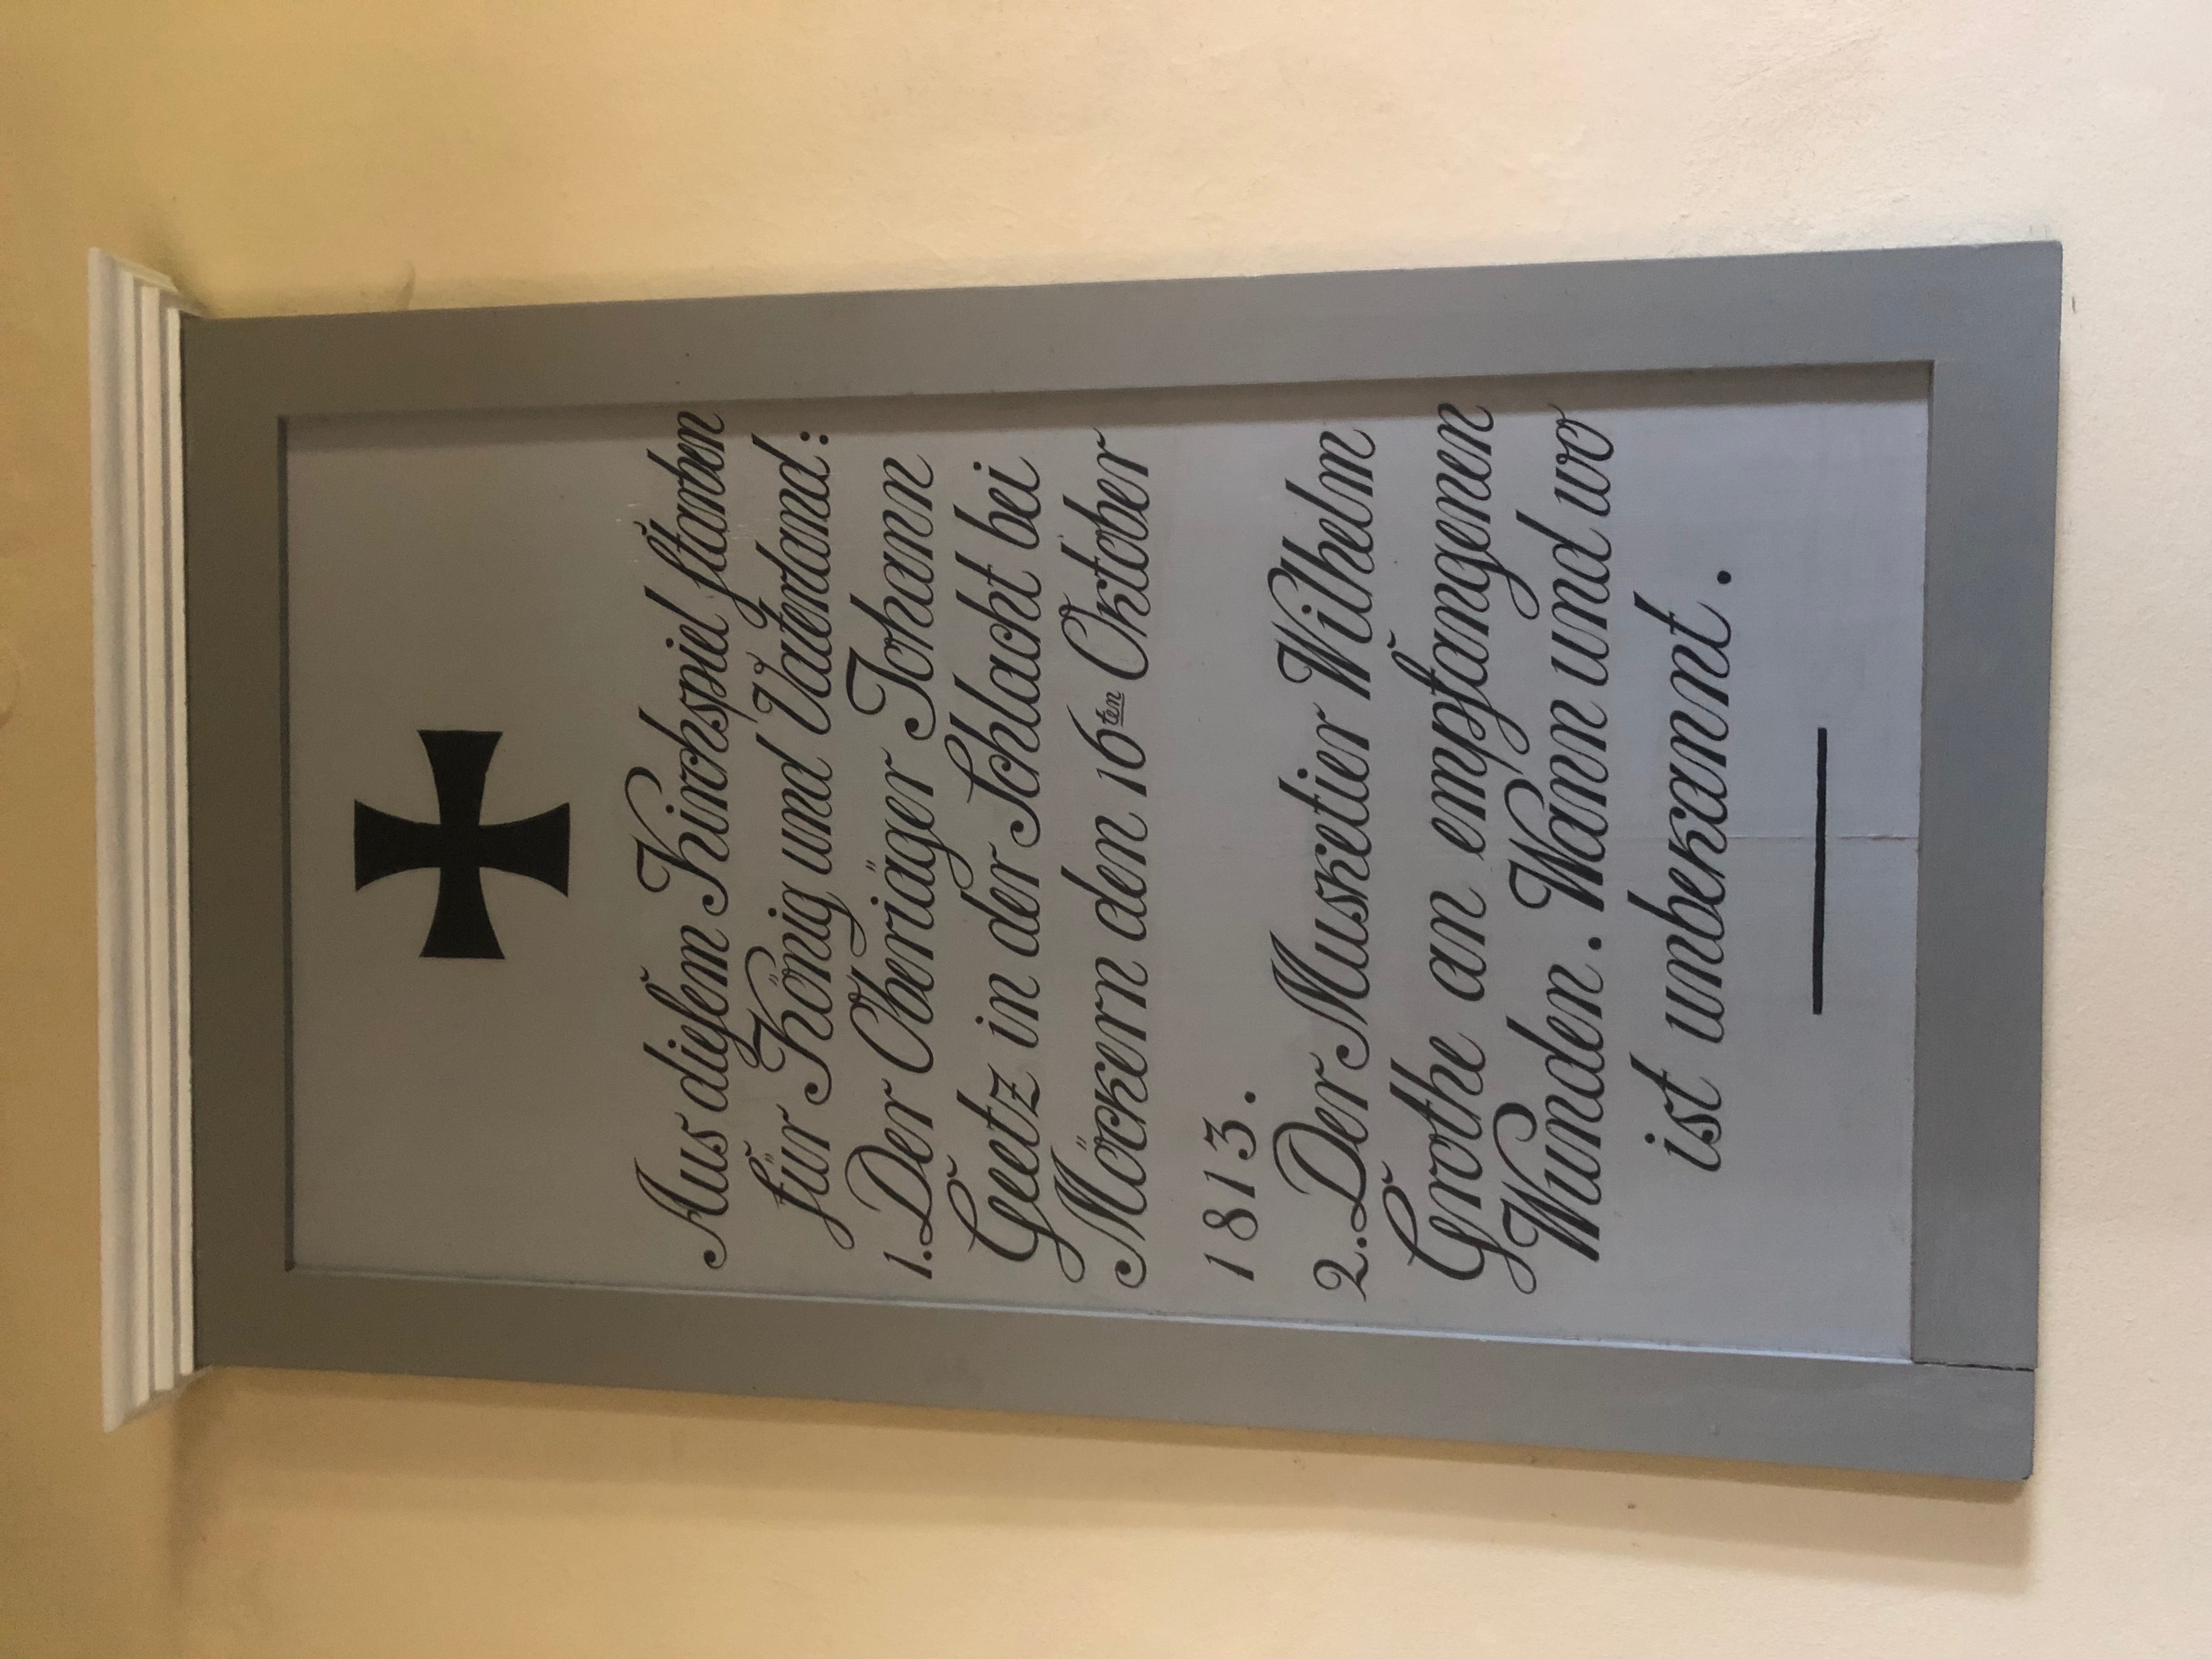 Aus dieſem Kirchspiel ſtarben
für König und Vaterland:
1. Der Oberiäger Johann
Geetz in der Schlacht bei
Möckern den 16ten Oktober
1813.
2. Der Musketier Wilhelm
Grothe an empfangenen
Wunden. Wann und wo
ist unbekannt.